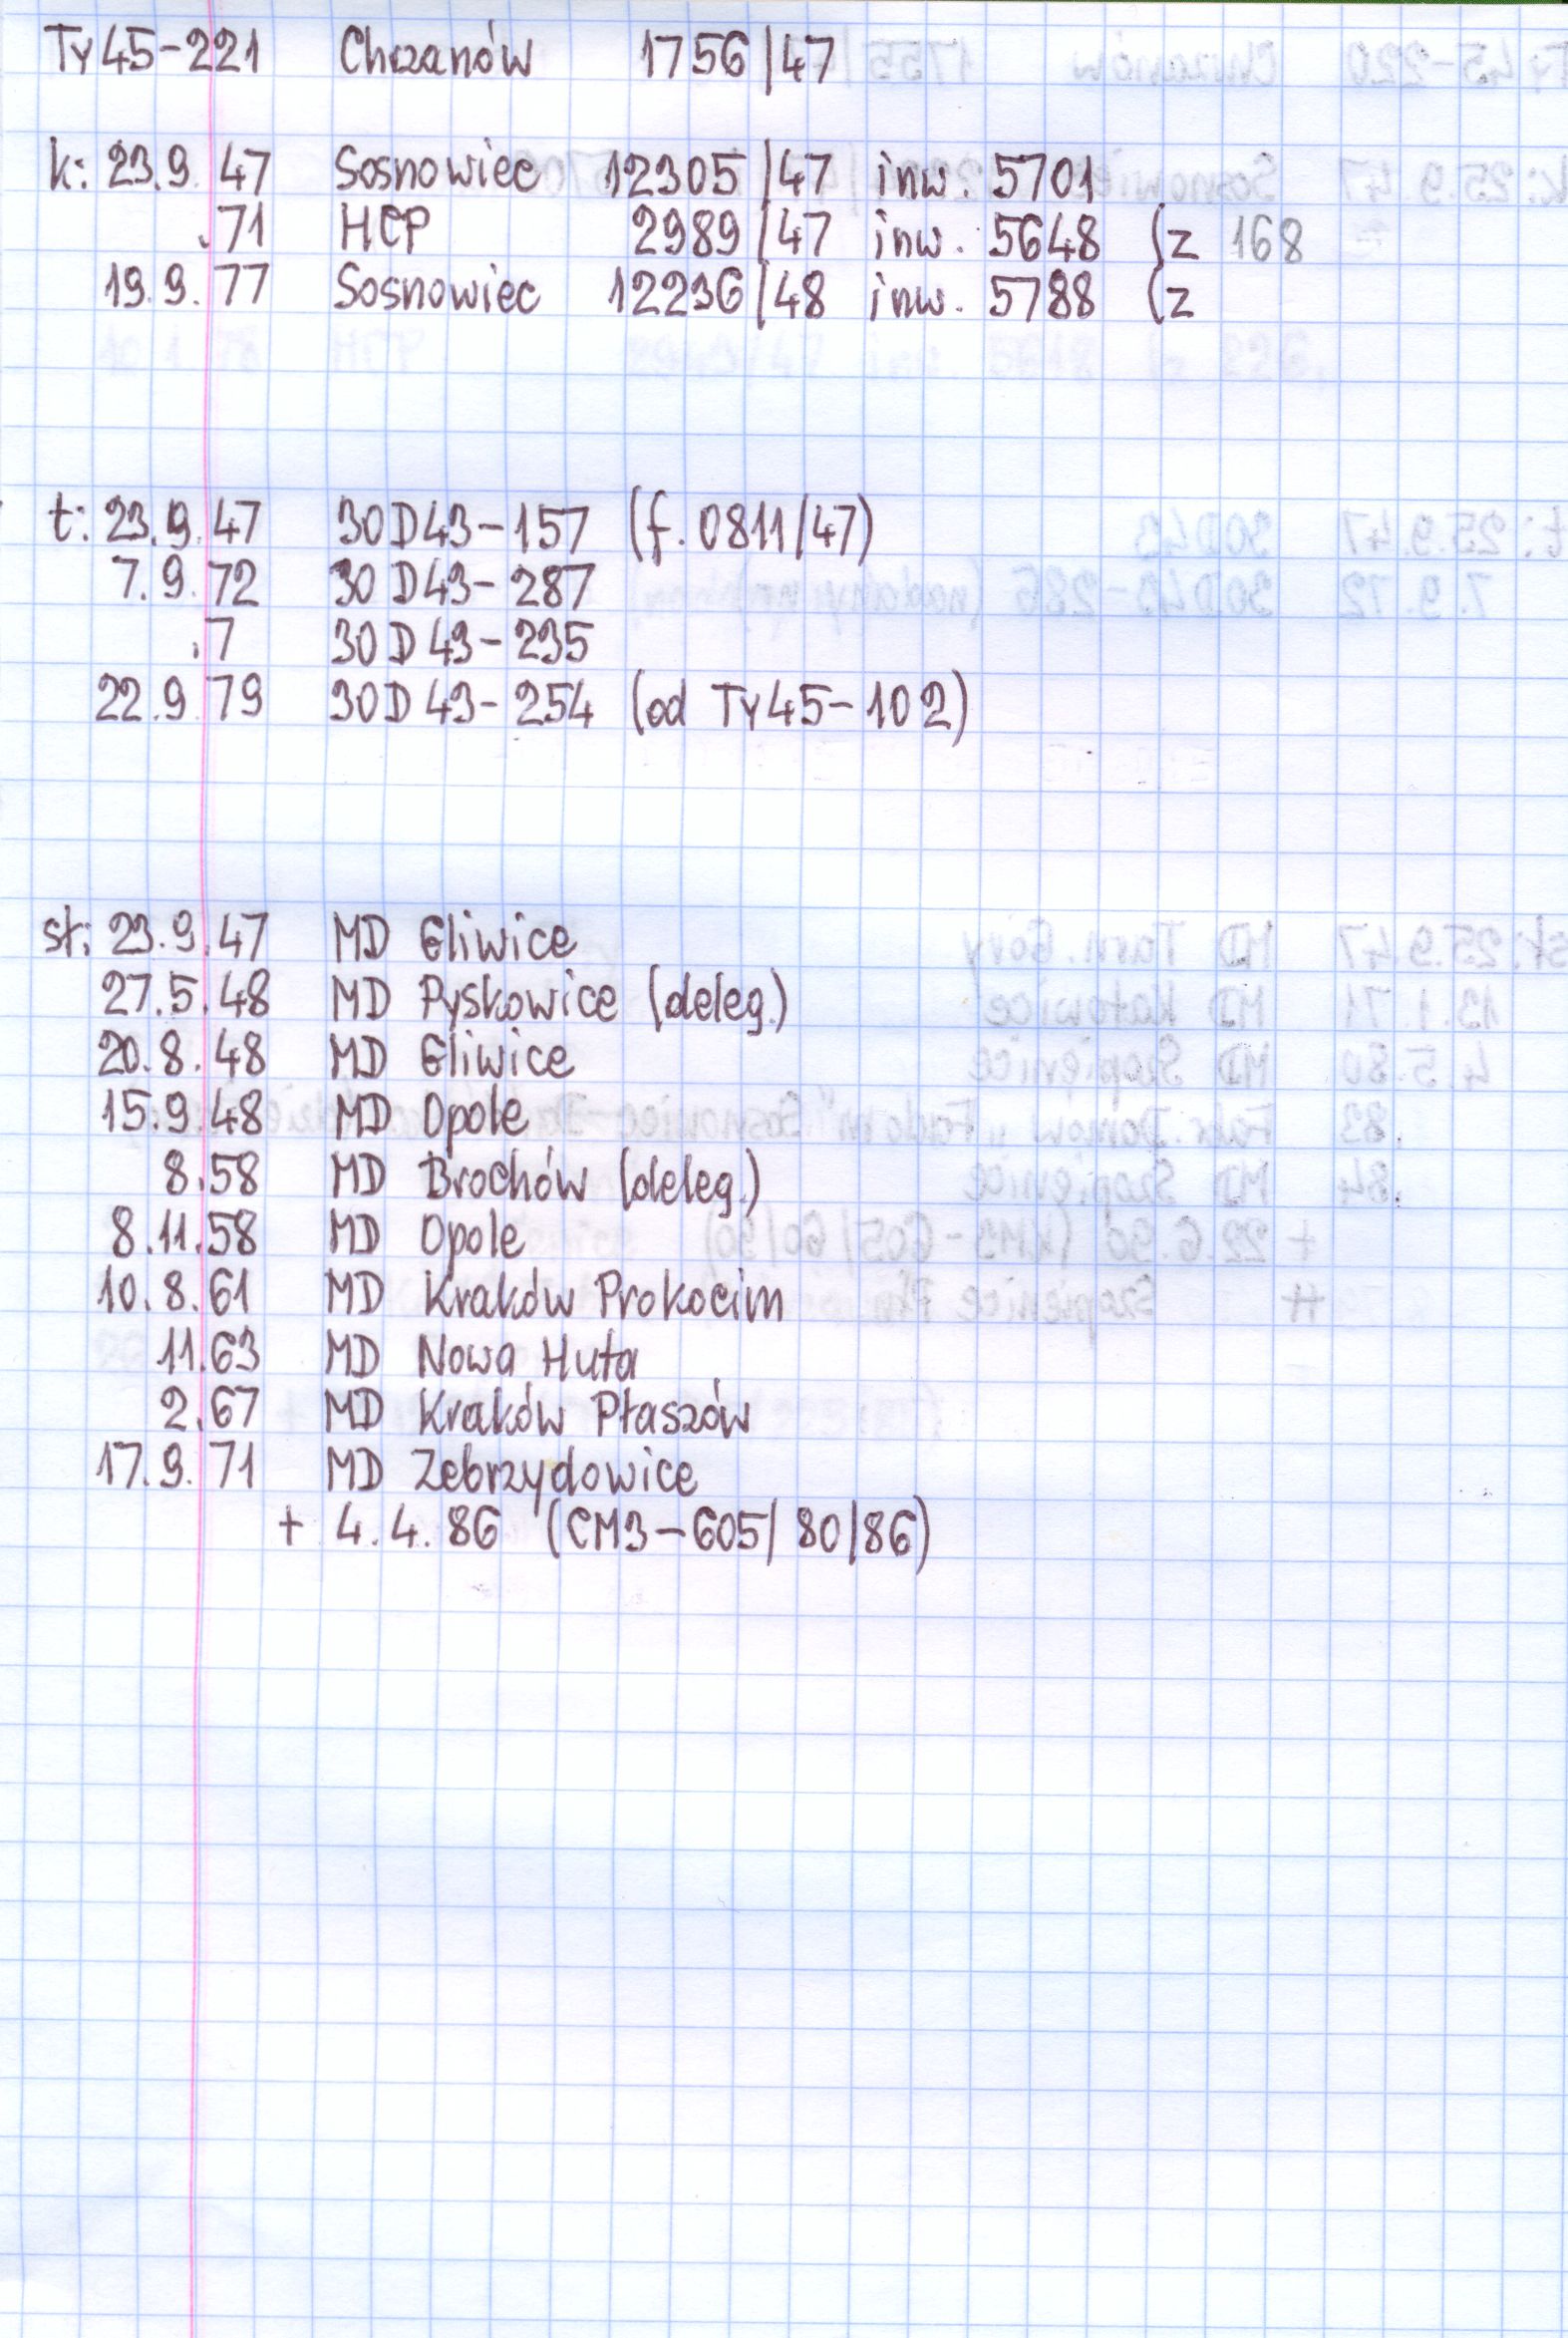 Ty45-221 Chrzanów 1756/47
k: 23.9.47 Sosnowiec 12305/47 inw. 5701
.71 HCP 2989/47 inw. 5648 (z 168
19.9.77 Sosnowiec 12236/48 inw. 5788 (z
t: 23.9.47 30D43-157 (f. 0811/47)
7.9.72 30D43-287
.7 30D43-235
22.9.79 30D43-254 (od Ty45-102)
st: 23.9.47 MD Gliwice
27.5.48 MD Pyskowice (deleg.)
20.8.48 MD Gliwice
15.9.48 MD Opole
8.58 MD Brochów (deleg.)
8.11.58 MD Opole
10.8.61 MD Kraków Prokocim
11.63 MD Nowa Huta
2.67 MD Kraków Płaszów
17.9.71 MD Zebrzydowice
+ 4.4.86 (CM3-605/80/86)